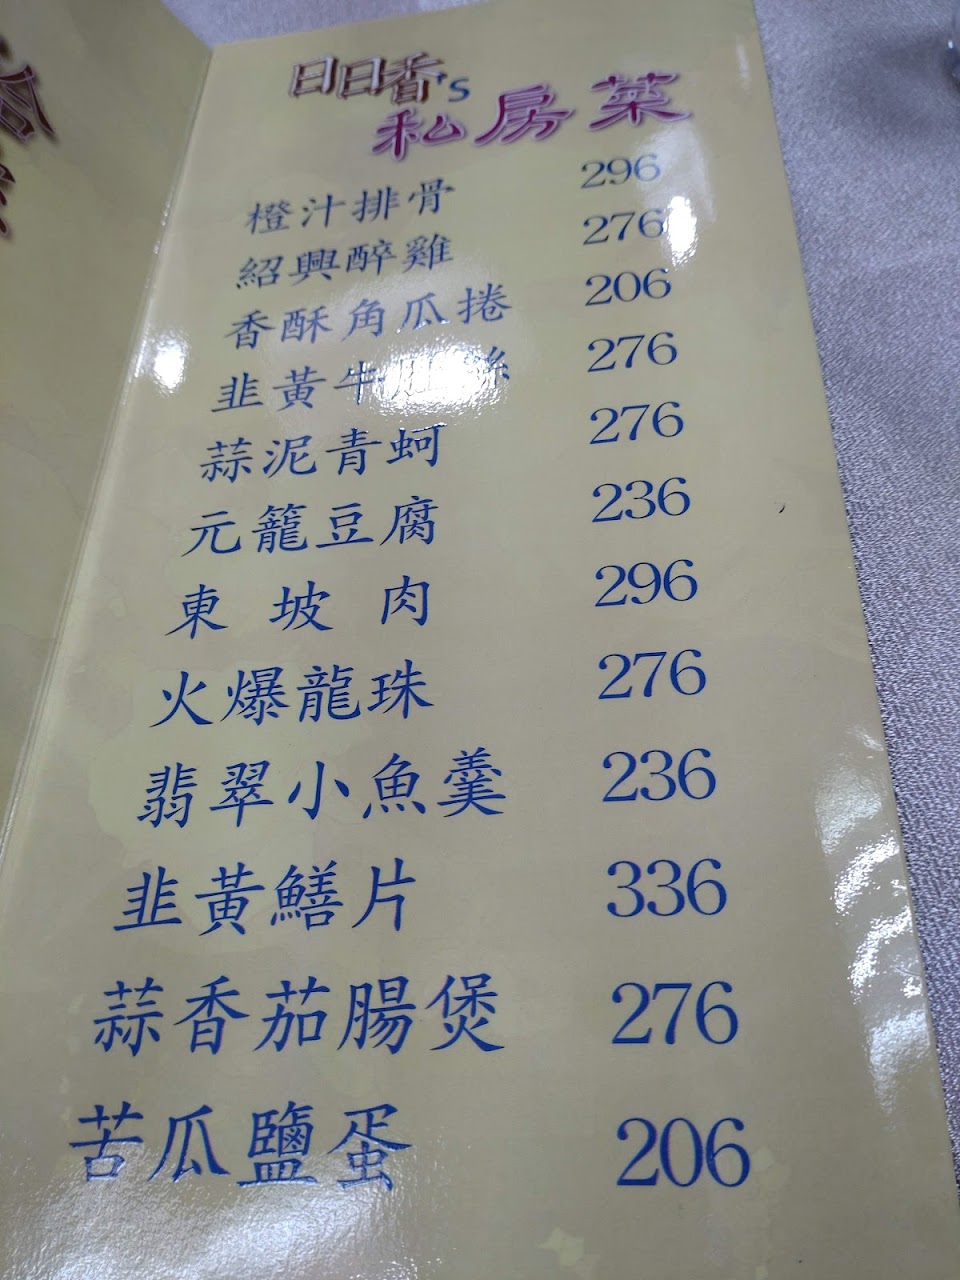 日日香's
私房菜
橙汁排骨 296
紹興醉雞 276
香酥角瓜捲 206
韭黃牛絲 276
蒜泥青蚵 276
元籠豆腐 236
東坡肉 296
火爆龍珠 276
翡翠小魚羹 236
韭黃鱔片 336
蒜香茄腸煲 276
苦瓜鹽蛋 206